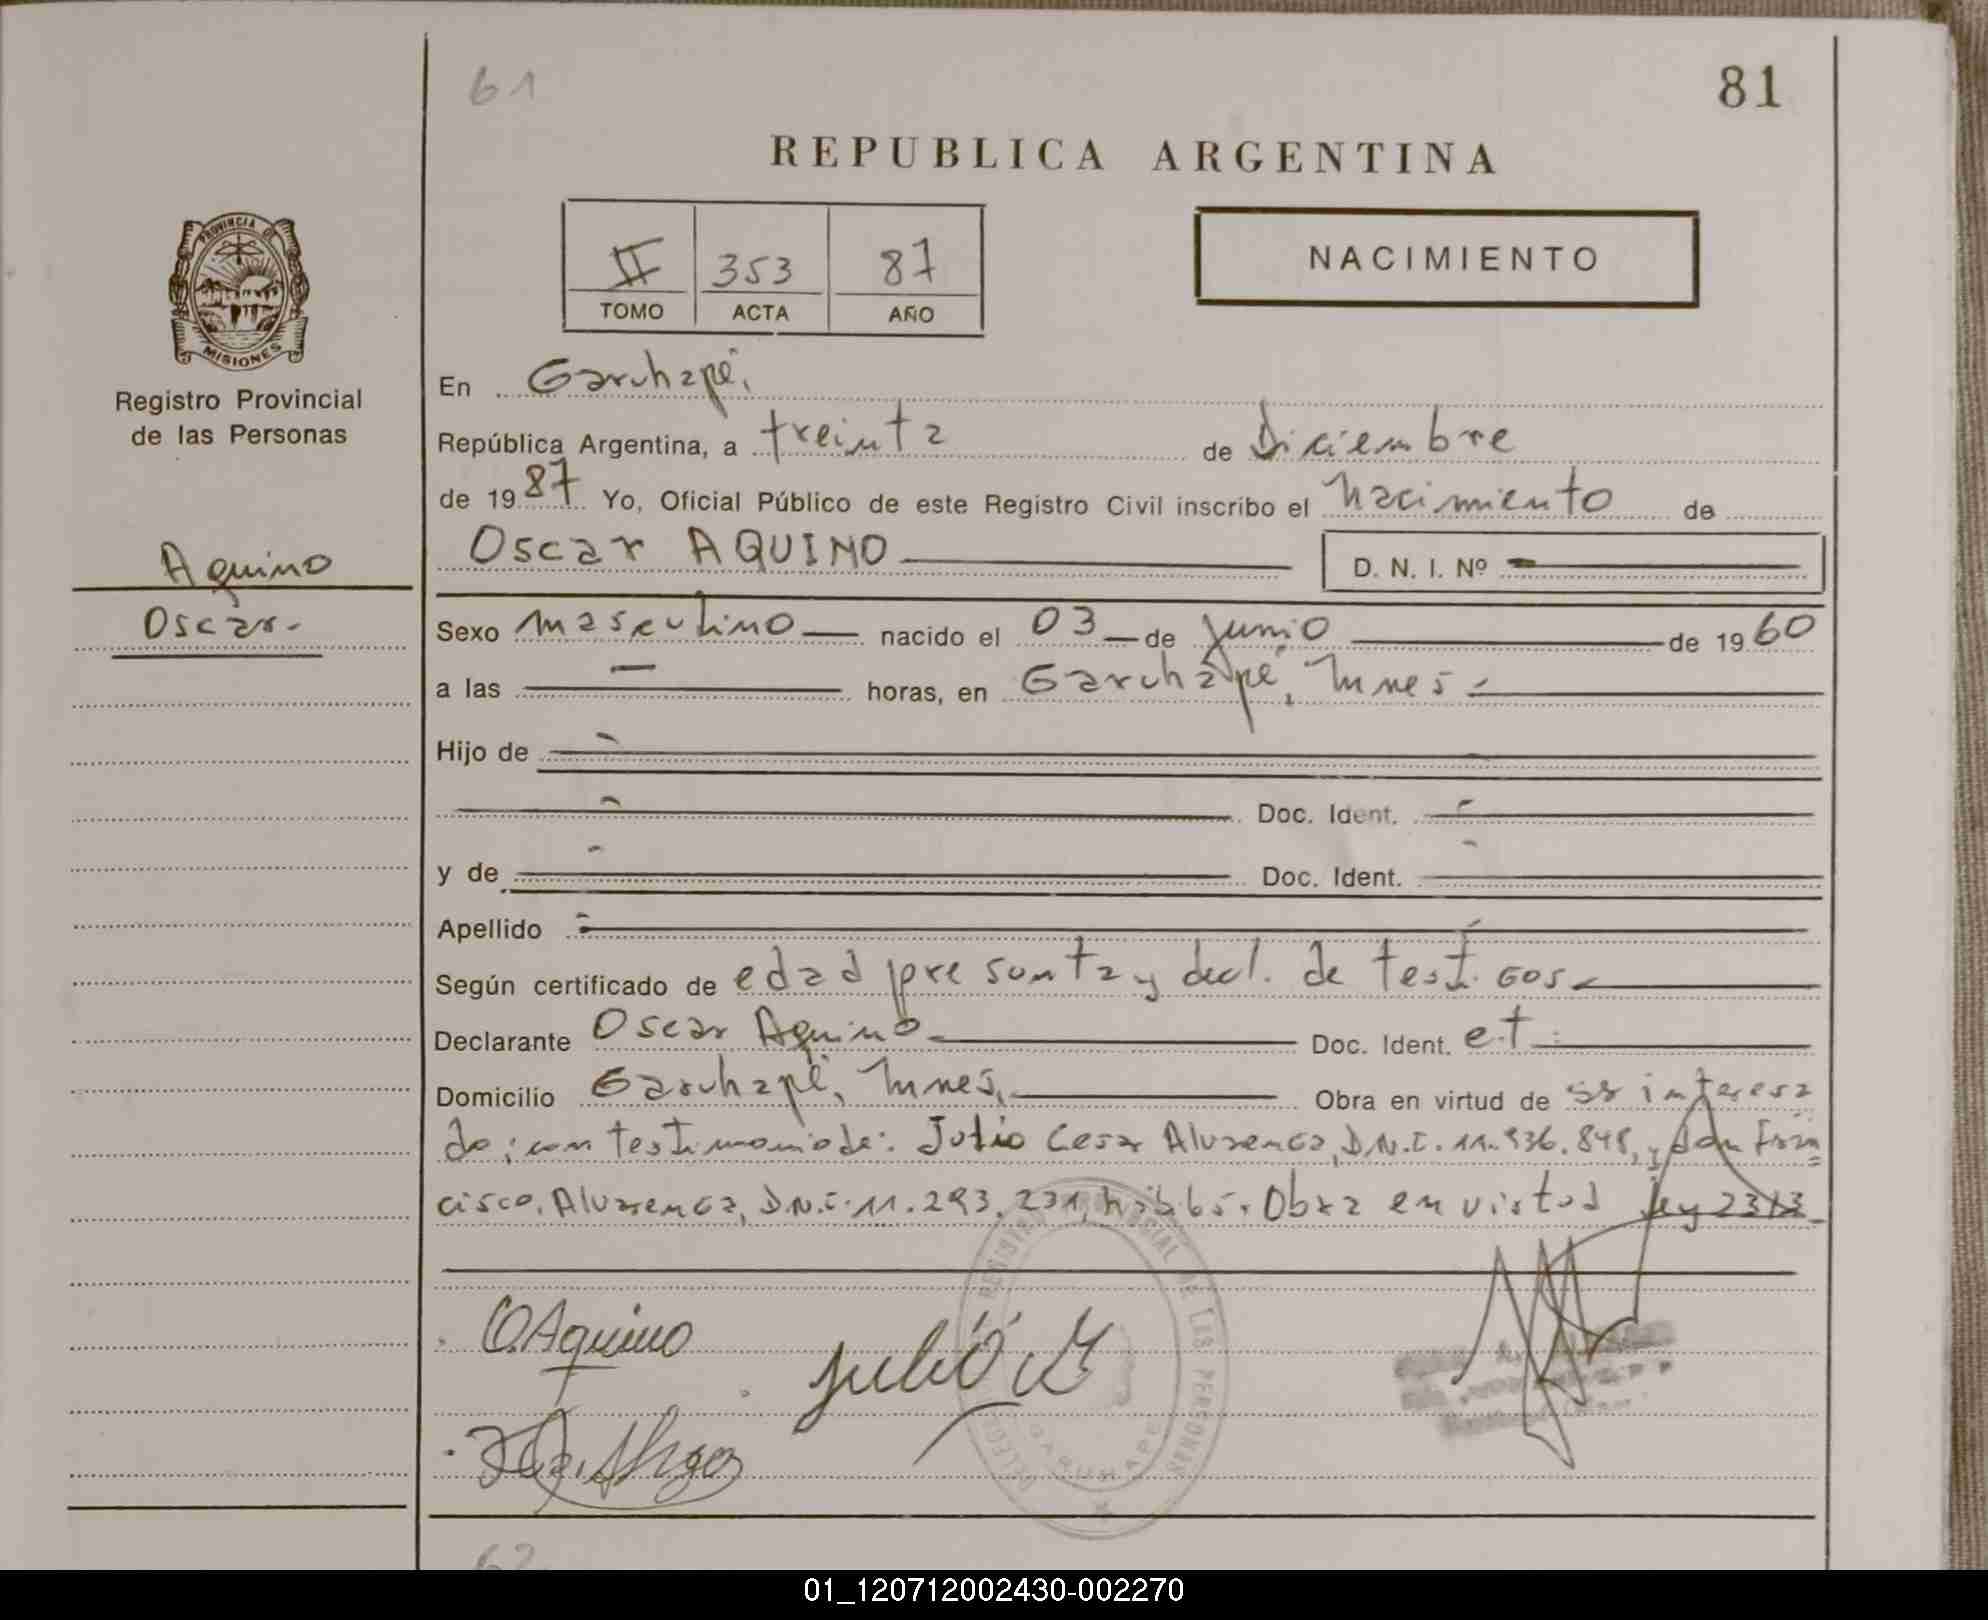 61
81
REPUBLICA ARGENTINA
II 353 87
TOMO ACTA AÑO
NACIMIENTO
PROVINCIA DE
MISIONES
Registro Provincial
de las Personas
Aquino
Oscar.-
En Garuhapé,
República Argentina, a treinta de Diciembre
de 1987 Yo, Oficial Público de este Registro Civil inscribo el nacimiento de
Oscar AQUINO
D. N. I. Nº
Sexo masculino nacido el 03 de Junio de 1960
a las horas, en Garuhapé, Mnes.-
Hijo de
Doc. Ident.
y de Doc. Ident.
Apellido
Según certificado de edad presunta y decl. de testigos.
Declarante Oscar Aquino Doc. Ident. e.t.
Domicilio Garuhapé, Mnes, Obra en virtud de ser interesa
do; con testimonio de: Julio Cesar Alvarenga, D.N.I. 11.936.848, y don Fran
cisco, Alvarenga, D.N.I. 11.293.231, Obra en virtud ley
O.Aquino
Julio
REGISTRO PROVINCIAL DE LAS PERSONAS
GARUHAPE
62
01_120712002430-002270